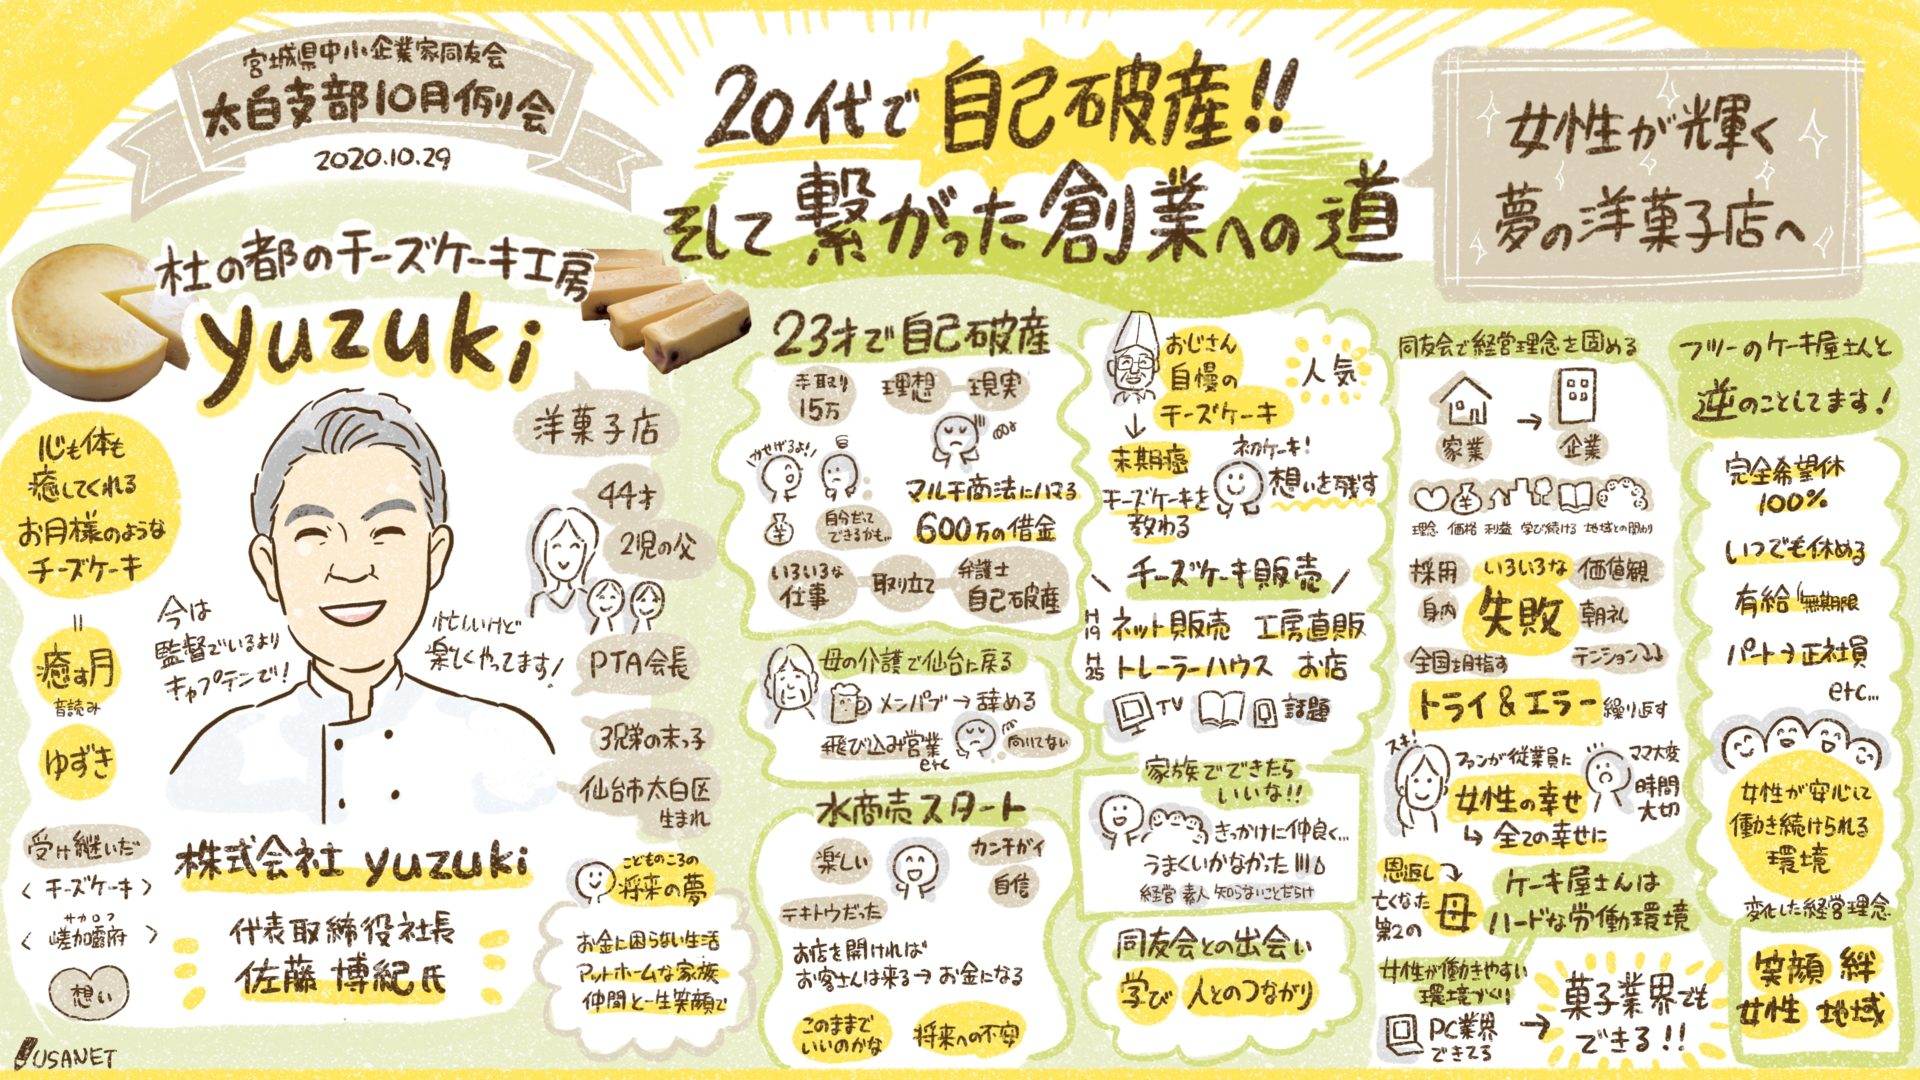 宮城県中小企業家同友会
太白支部10月例会
2020.10.29
20代で自己破産!!
そして繋がった創業への道
女性が輝く
夢の洋菓子店へ
杜の都のチーズケーキ工房
yuzuki
心も体も
癒してくれる
お月様のような
チーズケーキ
=
癒す月
音読み
ゆずき
受け継いだ
〈チーズケーキ〉
サカロフ
〈嵯加露府〉
想い
今は
監督でいるより
キャプテンで!
忙しいけど
楽しくやってます!
洋菓子店
44才
2児の父
PTA会長
3兄弟の末っ子
仙台市太白区
生まれ
株式会社 yuzuki
代表取締役社長
佐藤 博紀氏
こどものころの
将来の夢
お金に困らない生活
アットホームな家族
仲間と一生笑顔で
USANET
23才で自己破産
手取り
15万
理想
現実
かせげるよ!
自分だって
できるかも…
マルチ商法にハマる
600万の借金
いろいろな
仕事
取り立て
弁護士
自己破産
母の介護で仙台に戻る
メンパブ→辞める
飛び込み営業
etc
向いてない
水商売スタート
楽しい
カンチガイ
自信
テキトウだった
お店を開ければ
お客さんは来る→お金になる
このままで
いいのかな
将来への不安
おじさん
自慢の
チーズケーキ
人気
↓
末期癌
チーズケーキを
教わる
初ケーキ!
想いを残す
\ チーズケーキ販売 /
H19 ネット販売 工房直販
H25 トレーラーハウス お店
TV
話題
家族でできたら
いいな!!
きっかけに仲良く…
うまくいかなかった
経営 素人 知らないことだらけ
同友会との出会い
学び 人とのつながり
同友会で経営理念を固める
家業
→
企業
理念 価格 利益 学び続ける 地域との関わり
採用
いろいろな
価値観
身内
失敗
朝礼
全国を目指す
テンション↓↓
トライ&エラー 繰り返す
スキ!
ファンが従業員に
女性の幸せ
↳ 全ての幸せに
ママ大変
時間
大切
恩返し
亡くなった
第2の
母
ケーキ屋さんは
ハードな労働環境
女性が働きやすい
環境づくり
PC業界
できてる
→
菓子業界でも
できる!!
フツーのケーキ屋さんと
逆のことしてます!
完全希望休
100%
いつでも休める
有給 無期限
パート→正社員
etc…
女性が安心して
働き続けられる
環境
変化した経営理念
笑顔 絆
女性 地域